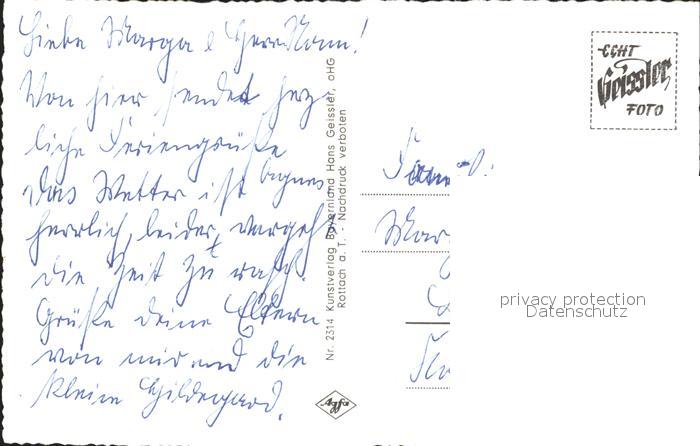 Liebe Marga & Herr Mann!
Von hier sendet herz-
liche Feriengrüße
Agnes
das Wetter ist
herrlich, leider vergeht
die Zeit zu rasch.
Grüße deine Eltern
von mir und die
kleine Hildegard.
Nr. 2314 Kunstverlag Bayernland Hans Geissler, oHG
Rottach a. T. - Nachdruck verboten
Agfa
ECHT
Geissler
FOTO
Fam
Mar
privacy protection
Datenschutz